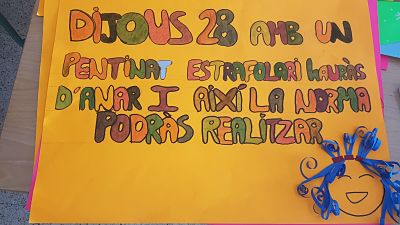 DIJOUS 28 AMB UN
PENTINAT ESTRAFOLARI HAURÀS
D'ANAR I AIXÍ LA NORMA
PODRÀS REALITZAR